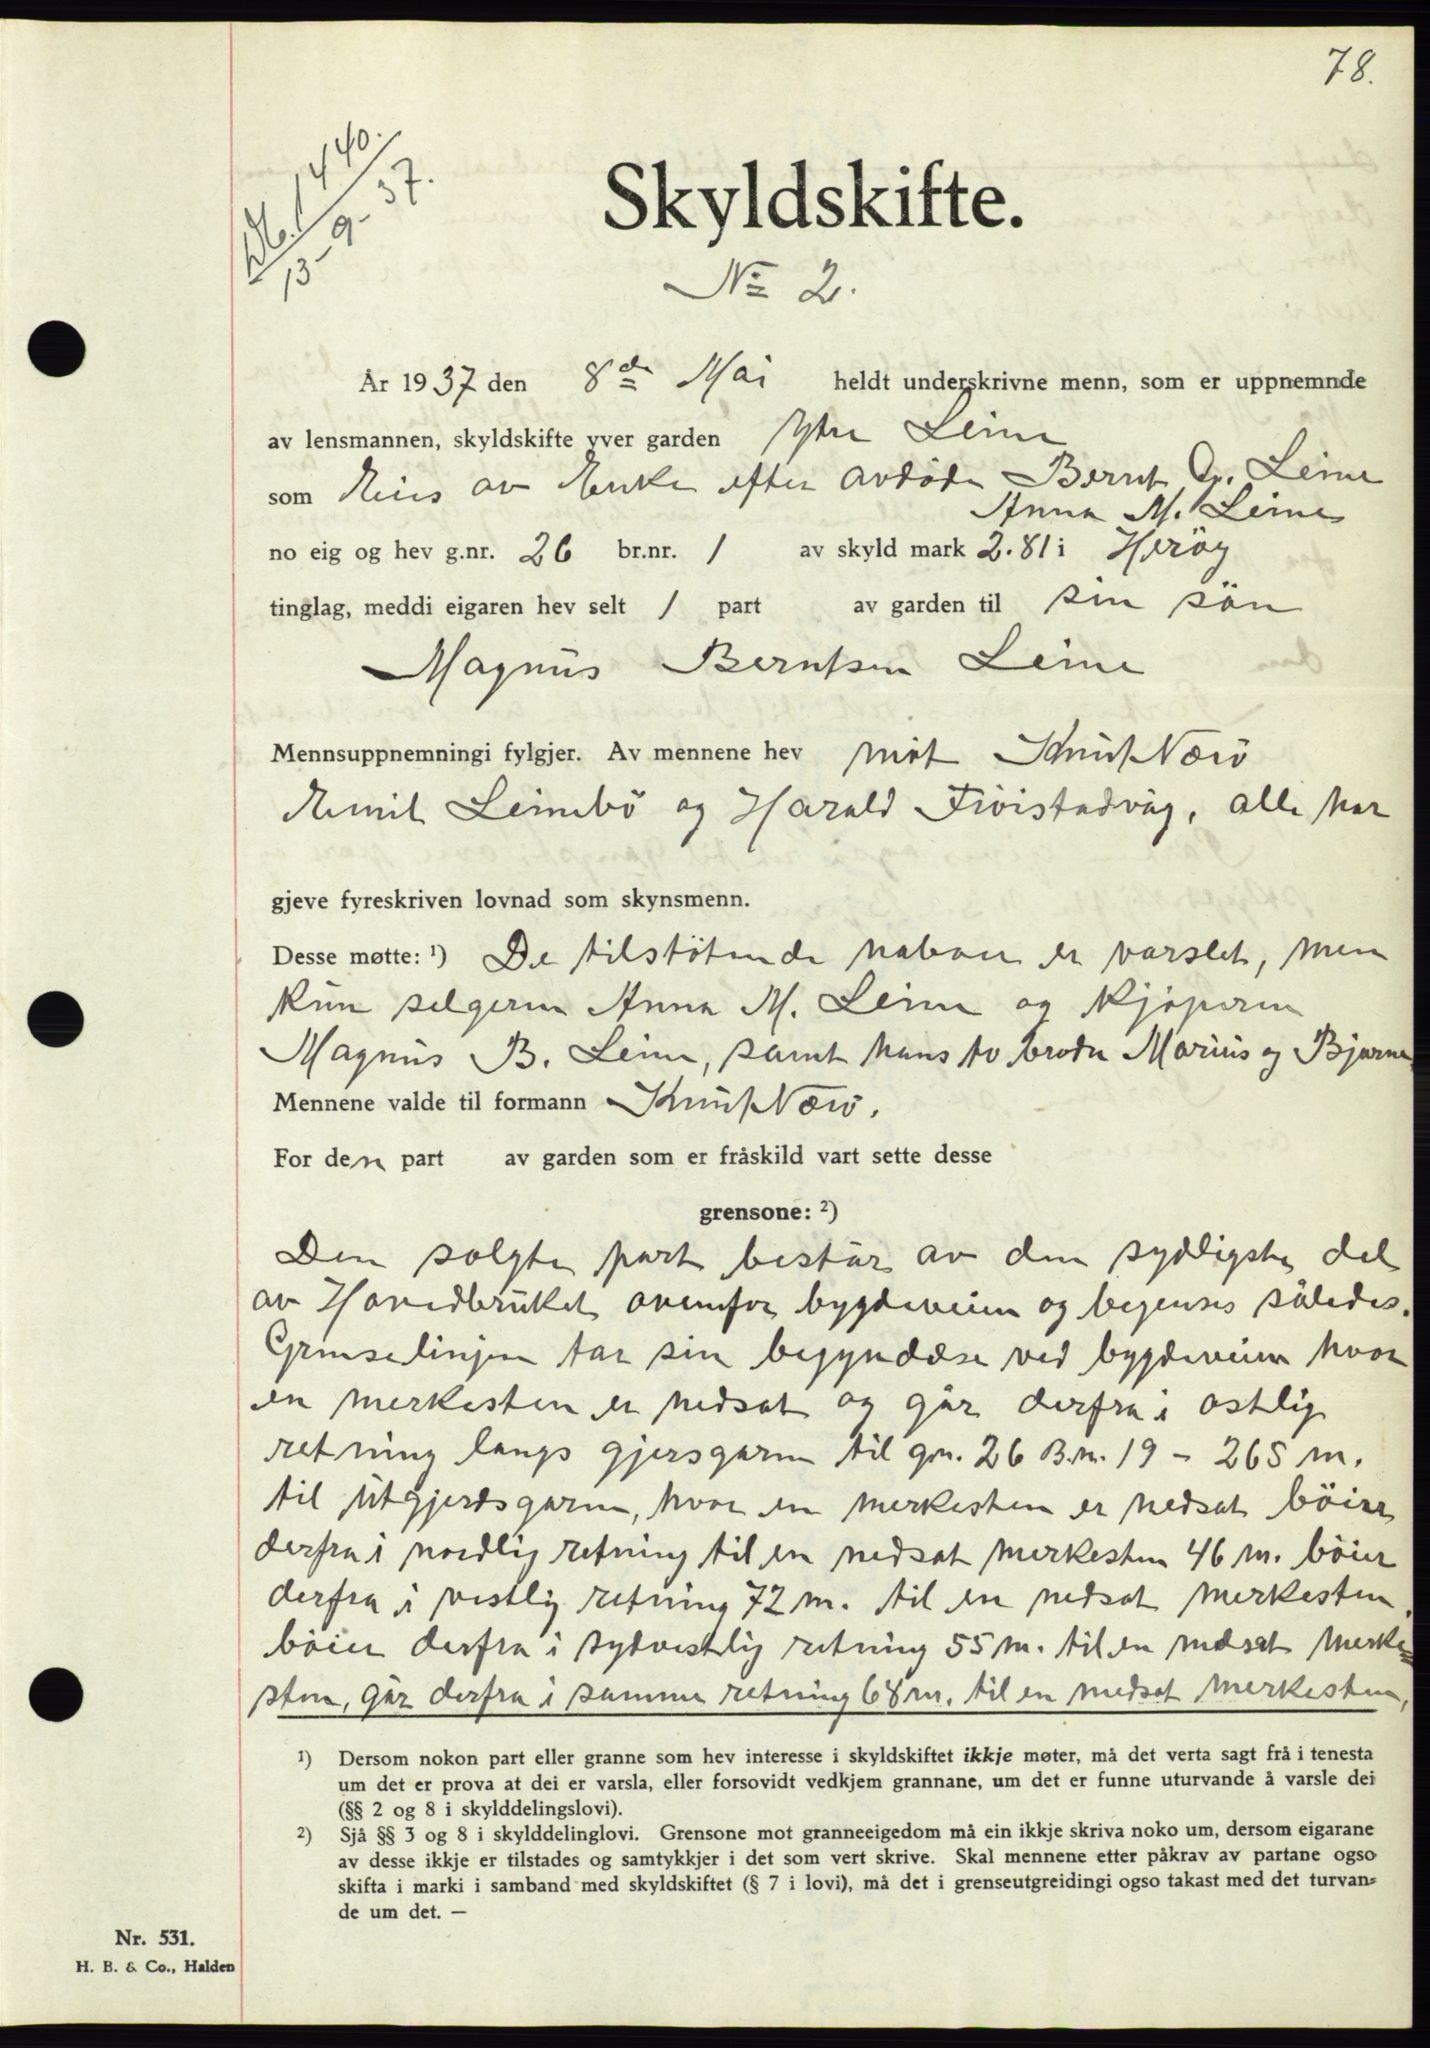 78.
440.
13-9-37.
Skyldskifte.
No 2.
År 1937 den 8de Mai heldt underskrivne menn, som er uppnemnde
av lensmannen, skyldskifte yver garden Ytre Leine
som Eies av Enke efter avdöde Bernt Leine
Anna M. Leine
no eig og hev g.nr. 26 br.nr. 1 av skyld mark 2.81 i Heröy
tinglag, meddi eigaren hev selt 1 part av garden til sin sön
Magnus Berntsen Leine
Mennsuppnemningi fylgjer. Av mennene hev möt Knut Nærö
Emil Leinebö og Harald Fröistadvåg, alle har
gjeve fyreskriven lovnad som skynsmenn.
Desse møtte: ¹) De tilstötende naboer er varslet, men
kun selgeren Anna M. Leine og Kjöperen
Magnus B. Leine, samt hans to brödre Marius og Bjarne
Mennene valde til formann Knut Nærö.
For den part av garden som er fråskild vart sette desse
grensone: ²)
Den solgte part består av den sydligste del
av Hovedbruket ovenfor bygdeveien og begenses således.
Grenselinjen tar sin begyndelse ved bygdeveien hvor
en merkesten er nedsat og går derfra i östlig
retning langs gjersgaren til gn. 26 B.n. 19 - 265 m.
til Utgjerdsgaren, hvor en merkesten er nedsat böier
derfra i nordlig retning til en nedsat merkesten 46 m. böier
derfra i vestlig retning 72 m. til en nedsat merkesten.
böier derfra i sydvestlig retning 55 m. til en nedsat merke=
sten, går derfra i samme retning 68 m. til en nedsat merkesten,
¹) Dersom nokon part eller granne som hev interesse i skyldskiftet ikkje møter, må det verta sagt frå i tenesta
um det er prova at dei er varsla, eller forsovidt vedkjem grannane, um det er funne uturvande å varsle dei
(§§ 2 og 8 i skylddelingslovi).
²) Sjå §§ 3 og 8 i skylddelinglovi. Grensone mot granneeigedom må ein ikkje skriva noko um, dersom eigarane
av desse ikkje er tilstades og samtykkjer i det som vert skrive. Skal mennene etter påkrav av partane ogso
skifta i marki i samband med skyldskiftet (§ 7 i lovi), må det i grenseutgreidingi ogso takast med det turvan=
de um det. —
Nr. 531.
H. B. & Co., Halden